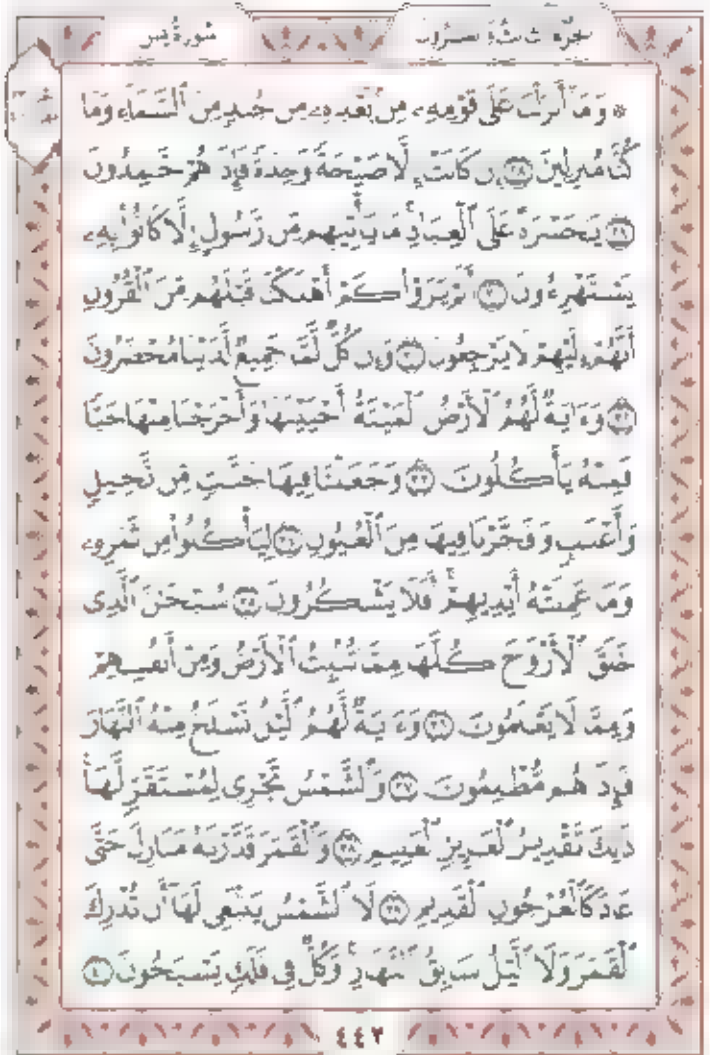 سُورَةُ يسٓ الجُزْءُ الثَّالِثُ وَالعِشْرُونَ
۞ وَمَآ أَنزَلْنَا عَلَىٰ قَوْمِهِۦ مِنۢ بَعْدِهِۦ مِن جُندٍ مِّنَ ٱلسَّمَآءِ وَمَا
كُنَّا مُنزِلِينَ ٢٨ إِن كَانَتْ إِلَّا صَيْحَةً وَٰحِدَةً فَإِذَا هُمْ خَـٰمِدُونَ
٢٩ يَـٰحَسْرَةً عَلَى ٱلْعِبَادِ ۚ مَا يَأْتِيهِم مِّن رَّسُولٍ إِلَّا كَانُوا۟ بِهِۦ
يَسْتَهْزِءُونَ ٣٠ أَلَمْ يَرَوْا۟ كَمْ أَهْلَكْنَا قَبْلَهُم مِّنَ ٱلْقُرُونِ
أَنَّهُمْ إِلَيْهِمْ لَا يَرْجِعُونَ ٣١ وَإِن كُلٌّ لَّمَّا جَمِيعٌ لَّدَيْنَا مُحْضَرُونَ
٣٢ وَءَايَةٌ لَّهُمُ ٱلْأَرْضُ ٱلْمَيْتَةُ أَحْيَيْنَـٰهَا وَأَخْرَجْنَا مِنْهَا حَبًّا
فَمِنْهُ يَأْكُلُونَ ٣٣ وَجَعَلْنَا فِيهَا جَنَّـٰتٍ مِّن نَّخِيلٍ
وَأَعْنَـٰبٍ وَفَجَّرْنَا فِيهَا مِنَ ٱلْعُيُونِ ٣٤ لِيَأْكُلُوا۟ مِن ثَمَرِهِۦ
وَمَا عَمِلَتْهُ أَيْدِيهِمْ ۖ أَفَلَا يَشْكُرُونَ ٣٥ سُبْحَـٰنَ ٱلَّذِى
خَلَقَ ٱلْأَزْوَٰجَ كُلَّهَا مِمَّا تُنۢبِتُ ٱلْأَرْضُ وَمِنْ أَنفُسِهِمْ
وَمِمَّا لَا يَعْلَمُونَ ٣٦ وَءَايَةٌ لَّهُمُ ٱلَّيْلُ نَسْلَخُ مِنْهُ ٱلنَّهَارَ
فَإِذَا هُم مُّظْلِمُونَ ٣٧ وَٱلشَّمْسُ تَجْرِى لِمُسْتَقَرٍّ لَّهَا ۚ
ذَٰلِكَ تَقْدِيرُ ٱلْعَزِيزِ ٱلْعَلِيمِ ٣٨ وَٱلْقَمَرَ قَدَّرْنَـٰهُ مَنَازِلَ حَتَّىٰ
عَادَ كَٱلْعُرْجُونِ ٱلْقَدِيمِ ٣٩ لَا ٱلشَّمْسُ يَنۢبَغِى لَهَآ أَن تُدْرِكَ
ٱلْقَمَرَ وَلَا ٱلَّيْلُ سَابِقُ ٱلنَّهَارِ ۚ وَكُلٌّ فِى فَلَكٍ يَسْبَحُونَ ٤٠
٤٤٢